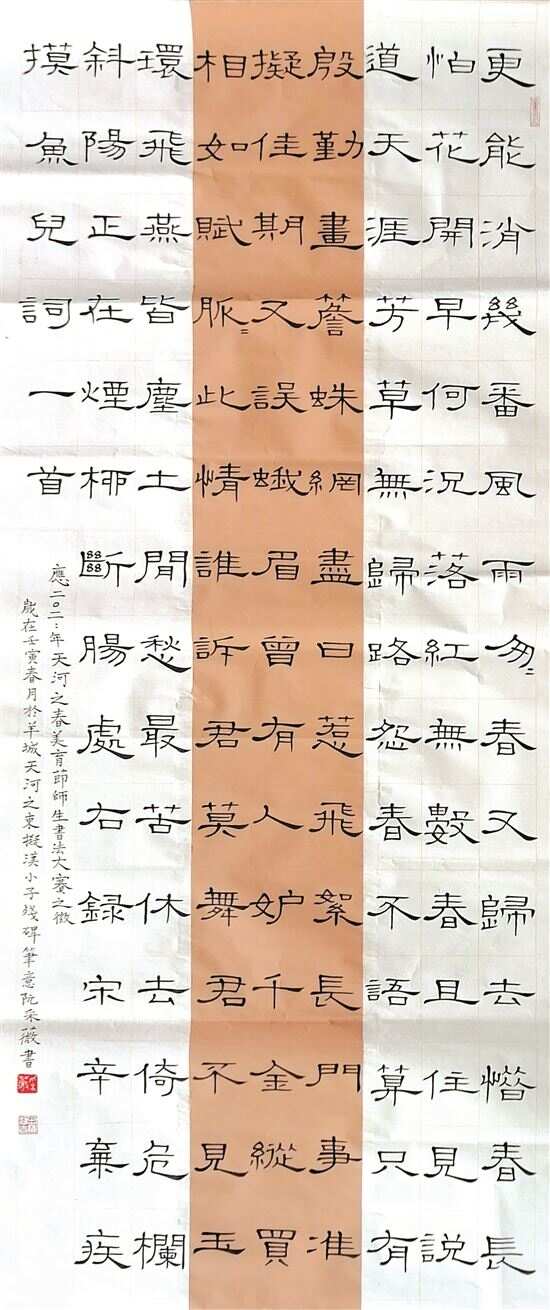 更能消幾番風雨匆〻春又歸去惜春長
怕花開早何況落紅無數春且住見說
道天涯芳草無歸路怨春不語算只有
殷勤畫簷蛛網盡日惹飛絮長門事准
擬佳期又誤蛾眉曾有人妒千金縱買
相如賦脈〻此情誰訴君莫舞君不見玉
環飛燕皆塵土閒愁最苦休去倚危欄
斜陽正在煙柳斷腸處右録宋辛棄疾
摸魚兒詞一首
應二〇二〻年天河之春美育節師生書法大賽之徵
歲在壬寅春月於羊城天河之東擬漢小子殘碑筆意阮采薇書